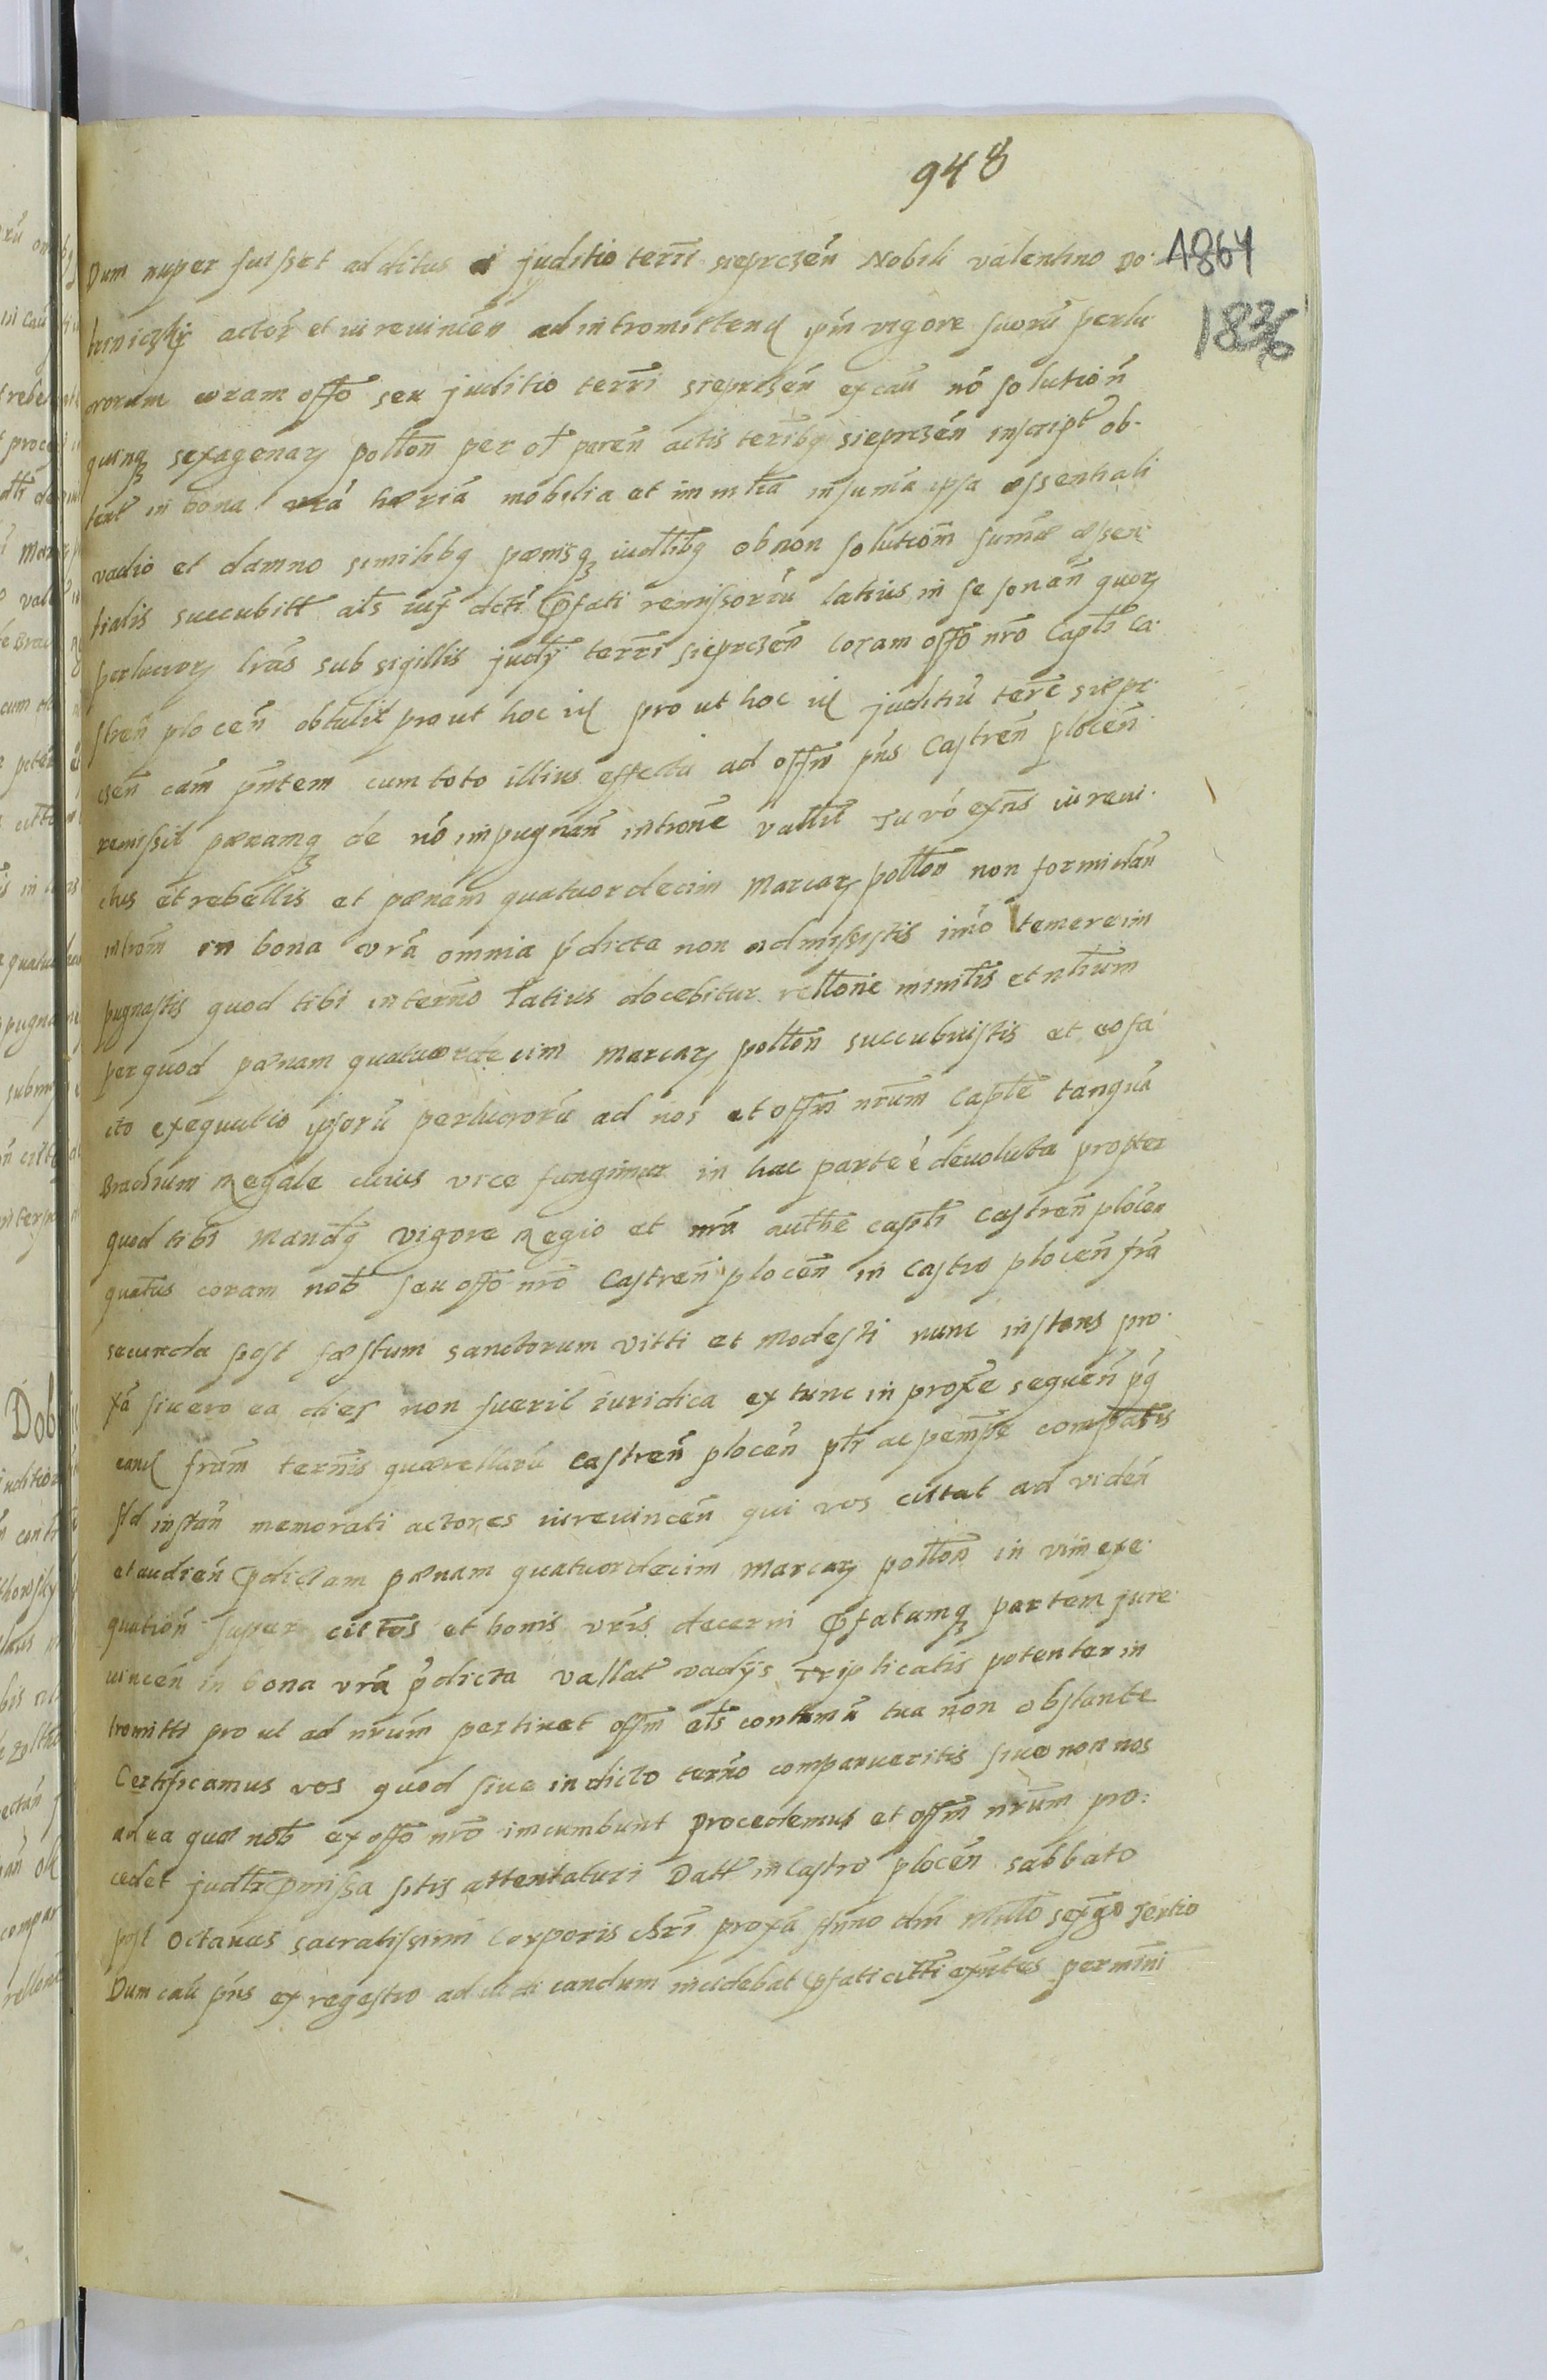 948
1864
1836
Dum nuper fuisset additus a juditio terri sieprczen Nobili valentino Do-
brniczky actor et iurevincen ad intromittend ipm vigore suoru perlu
crorum coram offo seu juditio terri sieprczen ex cau no solution
quinq sexagenar polton per ol paren actis terribq sieprczen inscript ob-
tent in bona vra haeria mobilia et immlia in suma ipsa essentiali
vadio et damno similibq paenisq iudlibq ob non solutiom sumae essen-
tialis succubitt als iux dcti pfati remissoriu latius in se sonan quor
perlucror lras sub sigillis judij terri sieprczen coram offo nro Captli Ca-
stren plocen obtulit prout hoc id prout hoc id juditiu terre siepr-
czen cam pntem cum toto illius effectu ad offm pns Castren plocen
remissit paenamq de no impugnan introne vallit Tu vo exns iurevi-
ctus et rebellis et paenam quatuordecim Marcar polton non formidan
introm in bona vra omnia pdicta non admisistis imo temere im
pugnastis quod tibi in termo latius docebitur reltione minitris et nlium
per quod paenam quatuordecim marcar polton succubuistis et eo fa
cto exequutio ipsoru perlucroru ad nos et offm nrum Captle tanqua
Brachium Regale cuius vice fungimur in hac parte e devoluta propter
quod tibi Mandq vigore Regio et nra authe captli castren plocen
quatus coram nob seu offo nro Castren plocen in Castro plocen fra
secunda post faestum sanctorum vitti et Modesti nunc instans pro-
xa si vero ea dies non fuerit iuridica ex tunc in proxe sequen pq
eand fram termis quaerellaru castren plocen plr ac pempe compatis
Ad instan memorati actores iurevincen qui vos cittat ad viden
et audien pdictam paenam quatuordecim Marcar polton in vim exe-
quution super cittos et bonis vris decerni pfatumq partem jure
vincen in bona vra pdicta vallat vadijs Triplicatis potenter in
tromitti prout ad nrum pertinet offm als contuma tua non obstante
Certificamus vos quod sive in dicto termo comparueritis sive non nos
ad ea quae nob ex offo nro incumbunt procedemus et offm nrum pro:
cedet judlr pmissa sitis attentaturi Datt in Castro plocen sabbato
post Octavas sacratissimi Corporis chri proxa Anno dni Millo sexgo Tertio
Dum cau pns ex regestro ad iudicandum incidebat pfati citti exntes permini